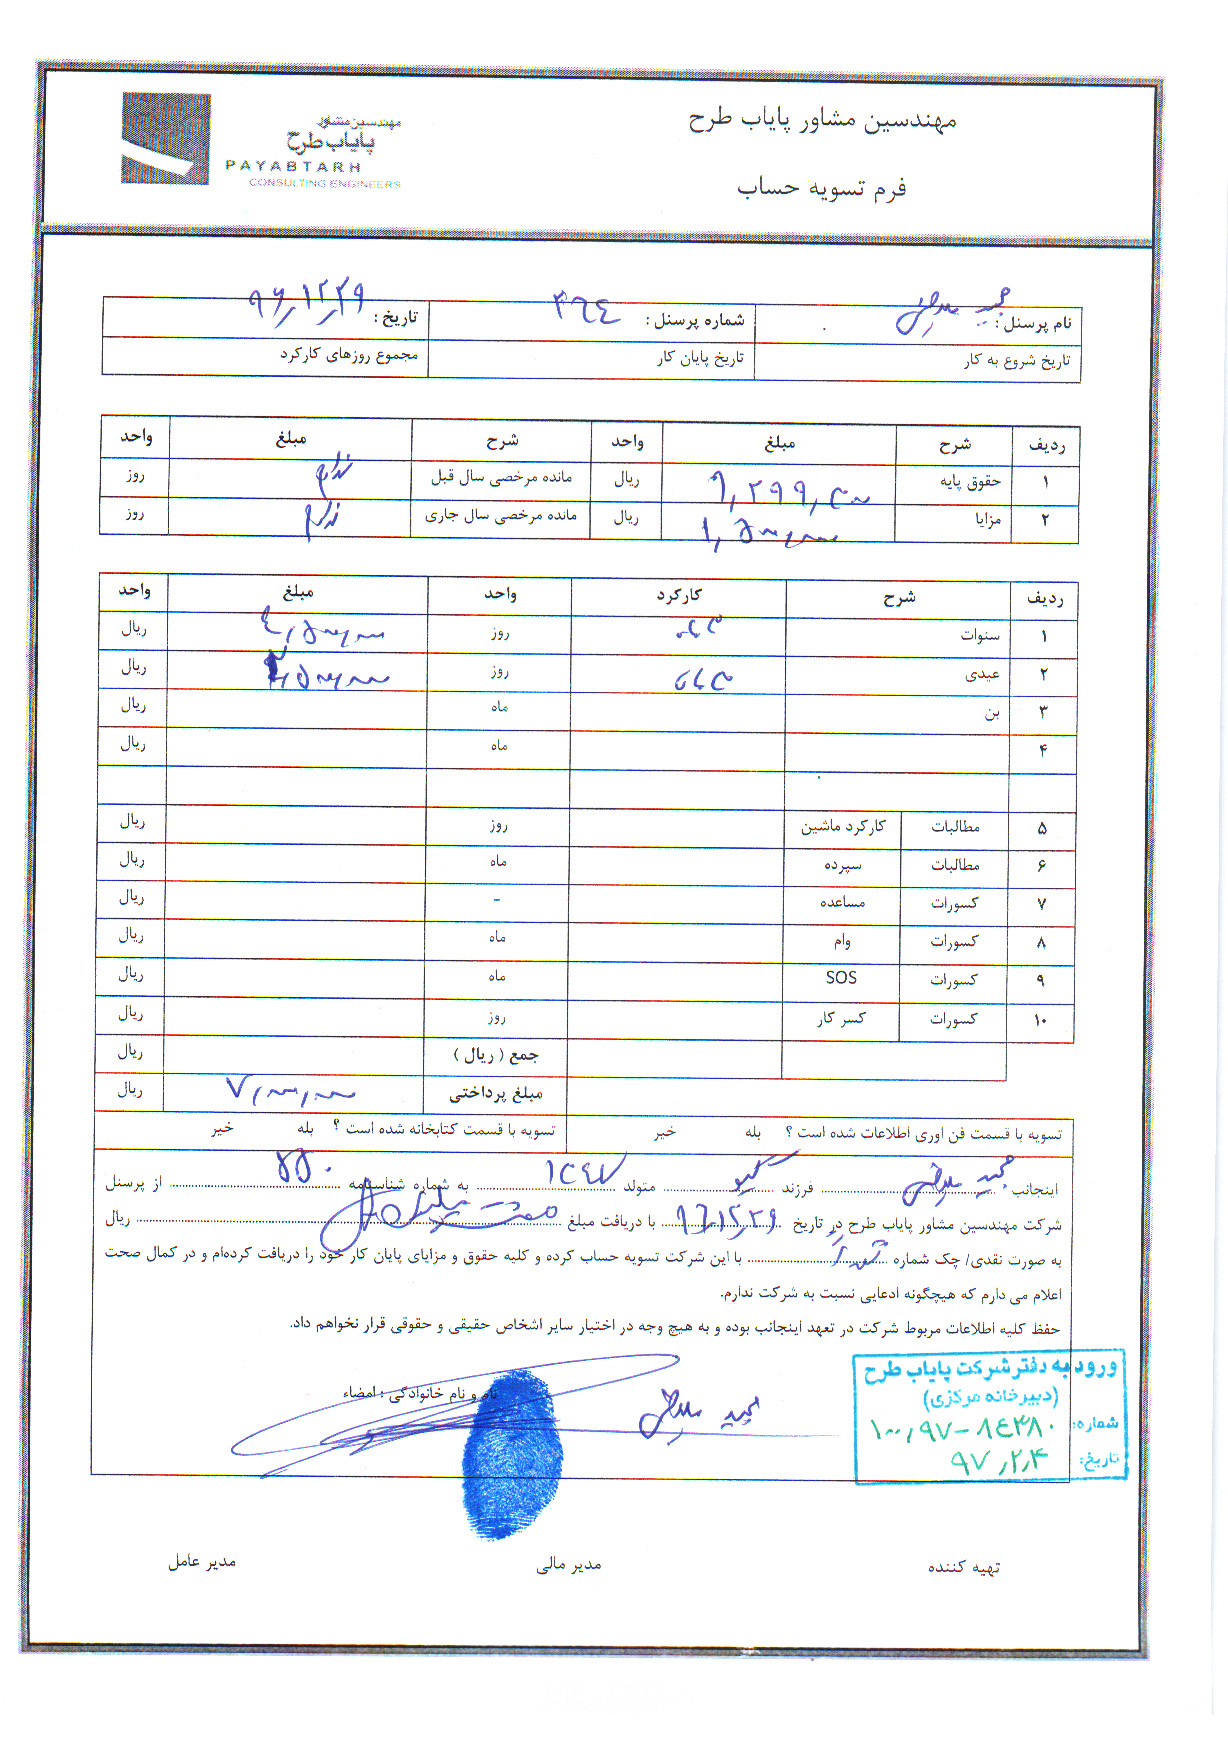 مهندسین مشاور پایاب طرح
فرم تسویه حساب
مهندسین مشاور
پایاب طرح
PAYABTARH
CONSULTING ENGINEERS
نام پرسنل : مجید شماره پرسنل : ۴۶۴ تاریخ : ۹۶/۱۲/۲۹
تاریخ شروع به کار تاریخ پایان کار مجموع روزهای کارکرد
ردیف شرح مبلغ واحد شرح مبلغ واحد
۱ حقوق پایه ۹,۲۹۹,۳۰۰ ریال مانده مرخصی سال قبل ندارم روز
۲ مزایا ۱,۵۰۰,۰۰۰ ریال مانده مرخصی سال جاری ندارم روز
ردیف شرح کارکرد واحد مبلغ واحد
۱ سنوات روز ۴,۵۰۰,۰۰۰ ریال
۲ عیدی روز ۲,۵۰۰,۰۰۰ ریال
۳ بن ماه ریال
۴ ماه ریال
۵ مطالبات کارکرد ماشین روز ریال
۶ مطالبات سپرده ماه ریال
۷ کسورات مساعده - ریال
۸ کسورات وام ماه ریال
۹ کسورات SOS ماه ریال
۱۰ کسورات کسر کار روز ریال
جمع ( ریال ) ریال
مبلغ پرداختی ۷,۰۰۰,۰۰۰ ریال
تسویه با قسمت فن اوری اطلاعات شده است ؟ بله خیر تسویه با قسمت کتابخانه شده است ؟ بله خیر
اینجانب مجید فرزند متولد ۱۳۴۷ به شماره شناسنامه ۵۵۰ از پرسنل
شرکت مهندسین مشاور پایاب طرح در تاریخ ۹۶/۱۲/۲۹ با دریافت مبلغ هفت میلیون ریال
به صورت نقدی/ چک شماره با این شرکت تسویه حساب کرده و کلیه حقوق و مزایای پایان کار خود را دریافت کرده‌ام و در کمال صحت
اعلام می دارم که هیچگونه ادعایی نسبت به شرکت ندارم.
حفظ کلیه اطلاعات مربوط شرکت در تعهد اینجانب بوده و به هیچ وجه در اختیار سایر اشخاص حقیقی و حقوقی قرار نخواهم داد.
نام و نام خانوادگی : امضاء
مجید
ورود به دفتر شرکت پایاب طرح
(دبیرخانه مرکزی)
شماره: ۱۰۰,۹۷-۸۴۳۸۰
تاریخ: ۹۷,۲,۴
تهیه کننده مدیر مالی مدیر عامل